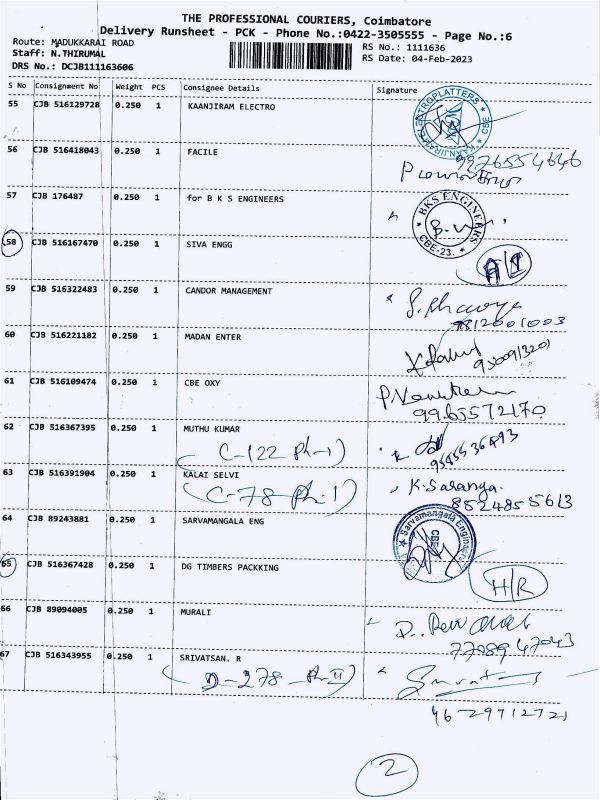 THE PROFESSIONAL COURIERS, Coimbatore
Delivery Runsheet - PCK - Phone No.:0422-3505555 - Page No.:6
Route: MADUKKARAI ROAD
RS No.: 1111636
Staff: N.THIRUMAL
RS Date: 04-Feb-2023
DRS No.: DCJB111163606
S No Consignment No Weight PCS Consignee Details Signature
55 CJB 516129728 0.250 1 KAANJIRAM ELECTRO
56 CJB 516418043 0.250 1 FACILE
9976554646
57 CJB 176487 0.250 1 for B K S ENGINEERS
BKS ENGINEERS
CBE-23.
58 CJB 516167470 0.250 1 SIVA ENGG
59 CJB 516322483 0.250 1 CANDOR MANAGEMENT
7812001003
60 CJB 516221182 0.250 1 MADAN ENTER
61 CJB 516109474 0.250 1 CBE OXY
9965572170
62 CJB 516367395 0.250 1 MUTHU KUMAR
C-122 Ph-1
63 CJB 516391904 0.250 1 KALAI SELVI
C-78 Ph-1
K. Saranga.
8524855613
64 CJB 89243881 0.250 1 SARVAMANGALA ENG
Sarvamangala Engineers
CBE
65 CJB 516367428 0.250 1 DG TIMBERS PACKKING
H/R
66 CJB 89094005 0.250 1 MURALI
7708947043
67 CJB 516343955 0.250 1 SRIVATSAN. R
D-278 Ph-II
9629712721
2